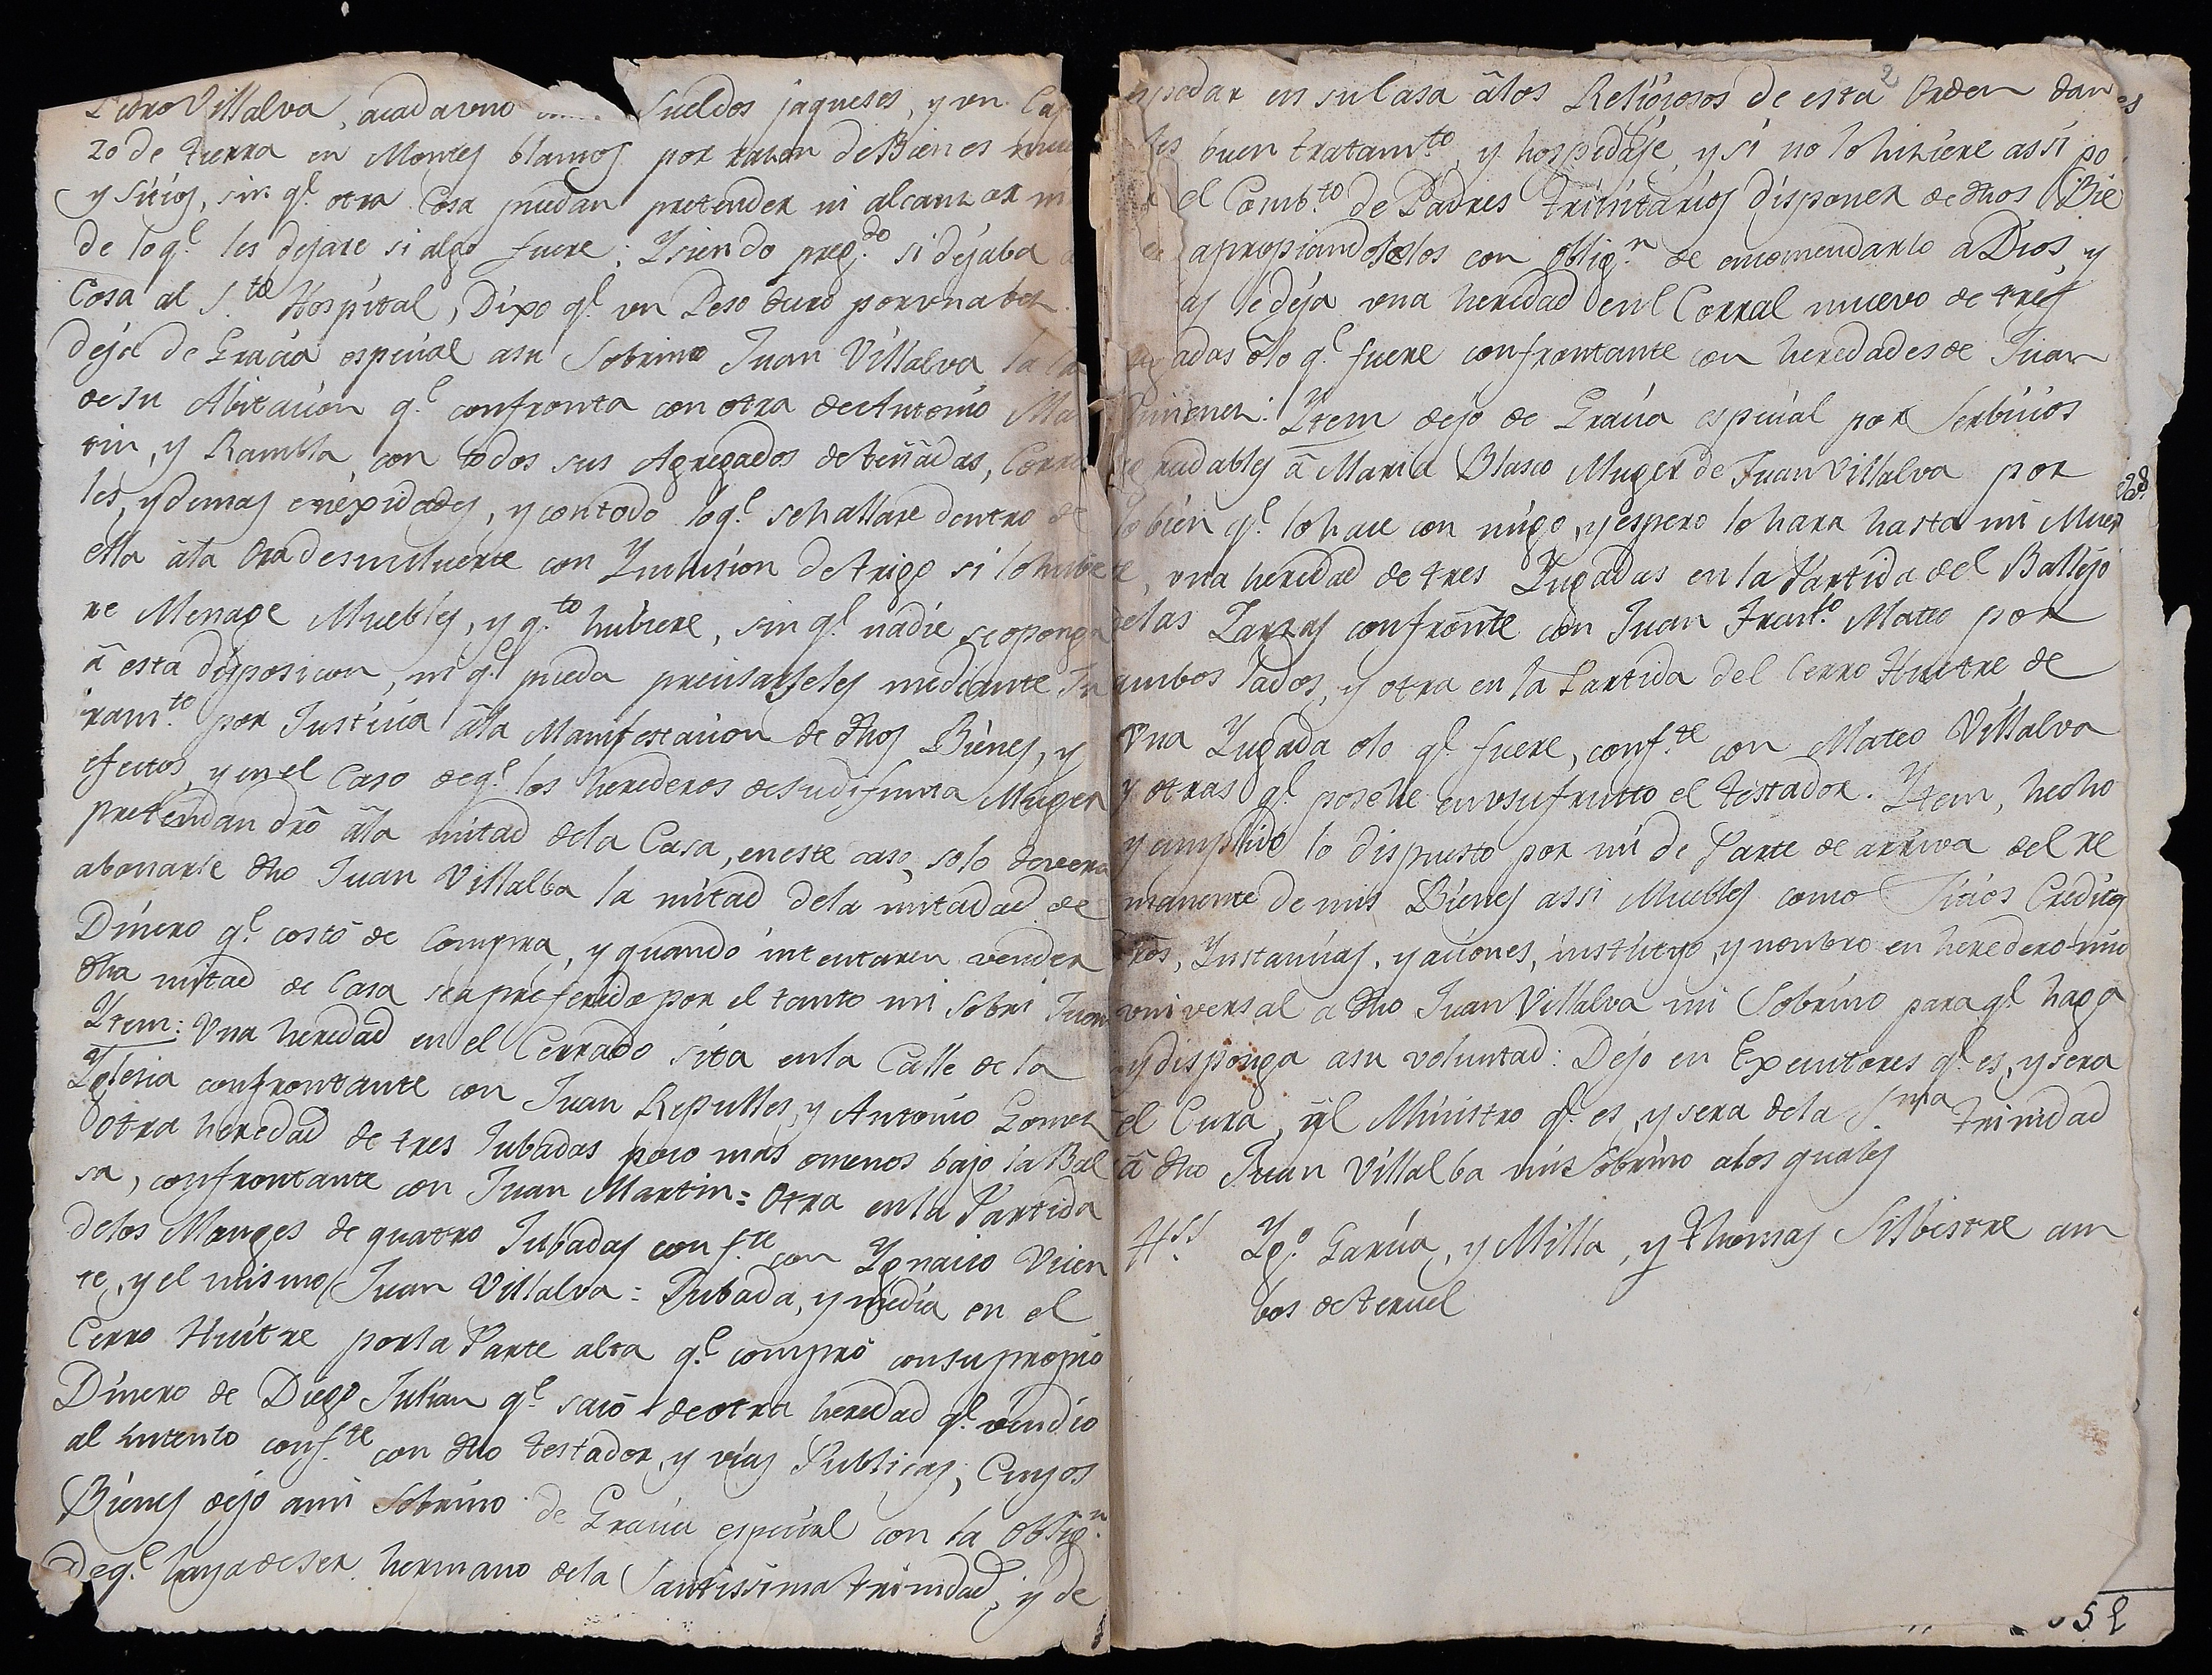 Pedro Villalva, acada uno sueldos jaqueses, y un Cay
zo de tierra en Montes blancos por razon de Bienes mue
y sitios, sin q.e otra Cosa puedan pretender ni alcanzar m
de lo q.e les dejare si algo fuere: Y siendo preg.do si dejaba a
Cosa al S.to Hospital, Dixo q.e un Peso duro por una bez.
dejo de Gracia especial asu Sobrino Juan Villalva la ca
de su Abitacion q.e confronta con otra de Antonio Mar
tin, y Rambla con todos sus Agregados de teñadas, Corra
les, y demas enexidades, y con todo lo q.e se hallare dentro de
ella âla Ora de su muerte con Inclusion de trigo si lo hubie
re Menage Muebles, y q.to hubiere, sin q.e nadie se oponga
â esta disposicion, ni q.e pueda precisarseles mediante Ju
ram.to por Justicia âla Manifestacion de dhos Bienes, y
efectos, y en el Caso de q.e los herederos de su difunta Muger
pretendan drô âla mitad dela Casa, en este caso, solo devera
abonarle dho Juan Villalba la mitad dela mitadad de
Dinero q.e costô de Compra, y quando intentaren vender
dha mitad de Casa sea preferido por el tanto mi Sobri Juan
Ytem: Una heredad en el Cerrado sita enla Calle de la
Yglesia confrontante con Juan Repulles, y Antonio Gomez
Otra heredad de tres Jubadas poco mas omenos bajo la Bal
sa, confrontante con Juan Martin= Otra en la Partida
delos Monges de quatro Jubadas conf.te con Ygnacio Vicen
te, y el mismo Juan Villalva= Jubada, y media en el
Cerro Huitre por la Parte alta q.e comprô con su propio
Dinero de Diego Julian q.e sacô de otra heredad q.e vendio
al intento conf.te con dho testador, y vias Publicas, Cuyos
Bienes dejo ami Sobrino de Gracia especial con la Oblig.n
de q.e haya de ser hermano dela Santissima trinidad, y de
espedar en su Casa âlos Religiosos de esta Orden dan
les buen tratam.to y hospedaje, y si no lo hiziere assi po
el Comb.to de Padres trinitarios disponer de dhos Bie
apropiandoselos con oblig.n de encomendarlo a Dios, y
as le deja una heredad en l Corral nuevo de tres
ugadas ôlo q.e fuere confrontante con heredades de Juan
Ximenez: Ytem dejo de Gracia especial por Serbicios
agradables â Maria Blasco Muger de Juan Villalva por
lo bien q.e lo hace con migo, y espero lo hara hasta mi Muer
te, una heredad de tres Yugadas en la Partida del Ballejo
delas Zarzas confronte con Juan Fran.co Mateo por
ambos lados, y otra en la Partida del Cerro Huitre de
Una Yugada olo q.e fuere, conf.te con Mateo Villalva
y otras q.e posehe en usufrutto el testador. Ytem, hecho
y cumplido lo dispuesto por mi de Parte de arriva del re
manente de mis Bienes assi Muebles como Sitios Creditos
dros, Instancias, y aciones, instituyo, y nombro en heredero mio
universal a dho Juan Villalva mi Sobrino para q.e haga
y disponga asu voluntad: Dejo en Executores q.e es, y sera
el Cura, y el Ministro q.e es, y sera dela S.ma trinidad
â dho Juan Villalba mi Sobrino alos quales
Yg.o Garcia, y Milla, y Thomas Silbestre am
bos de teruel